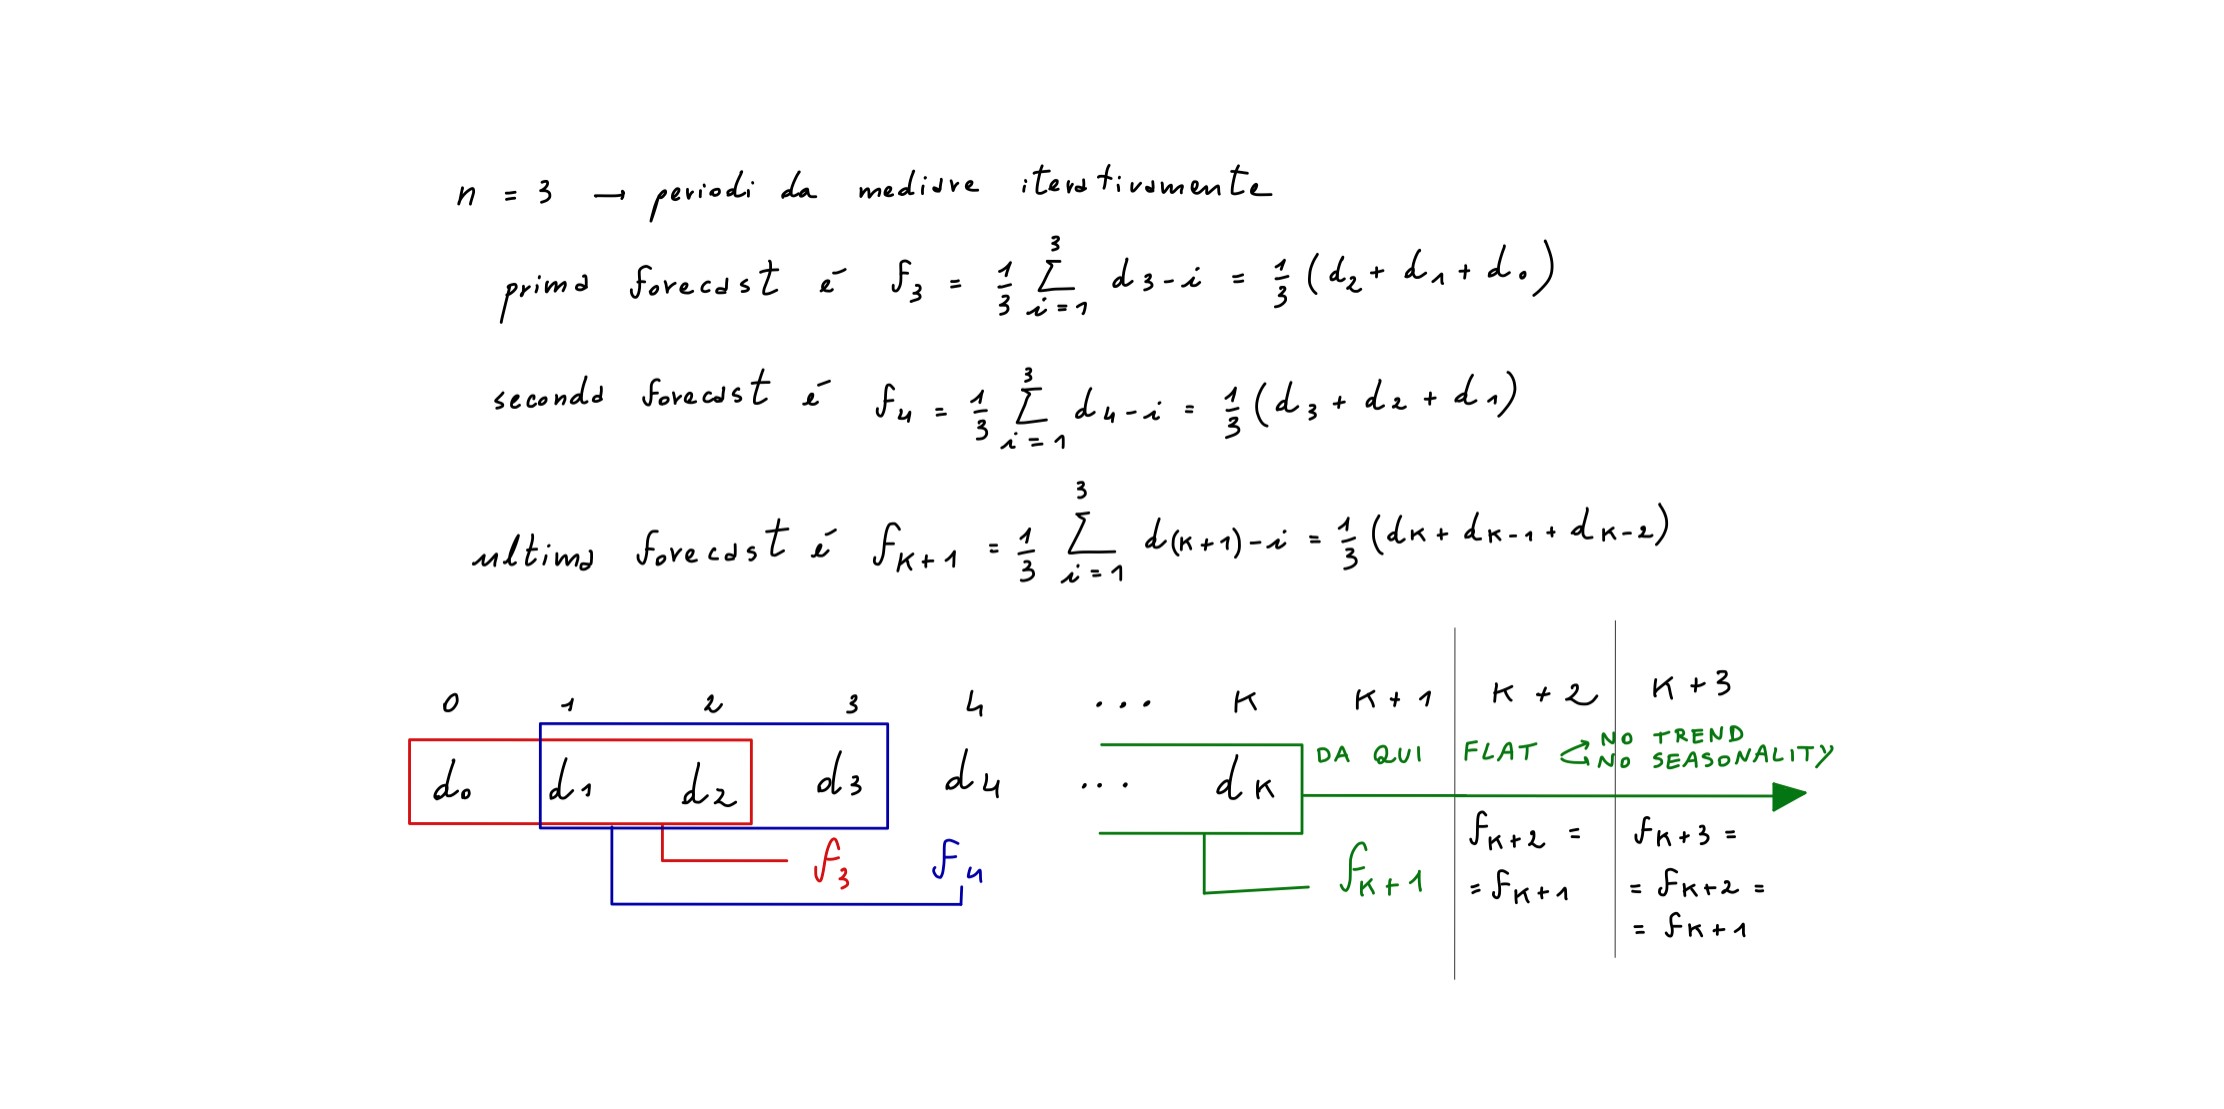 n = 3 → periodi da mediare iterativamente
prima forecast é f₃ = 1/3 Σ_{i=1}^{3} d_{3-i} = 1/3 (d₂ + d₁ + d₀)
seconda forecast é f₄ = 1/3 Σ_{i=1}^{3} d_{4-i} = 1/3 (d₃ + d₂ + d₁)
ultima forecast é f_{K+1} = 1/3 Σ_{i=1}^{3} d_{(K+1)-i} = 1/3 (d_K + d_{K-1} + d_{K-2})
0 1 2 3 4 ... K K+1 K+2 K+3
d₀ d₁ d₂ d₃ d₄ ... d_K DA QUI FLAT NO TREND
NO SEASONALITY
f₃ f₄ f_{K+1} f_{K+2} = f_{K+3} =
= f_{K+1} = f_{K+2} =
= f_{K+1}